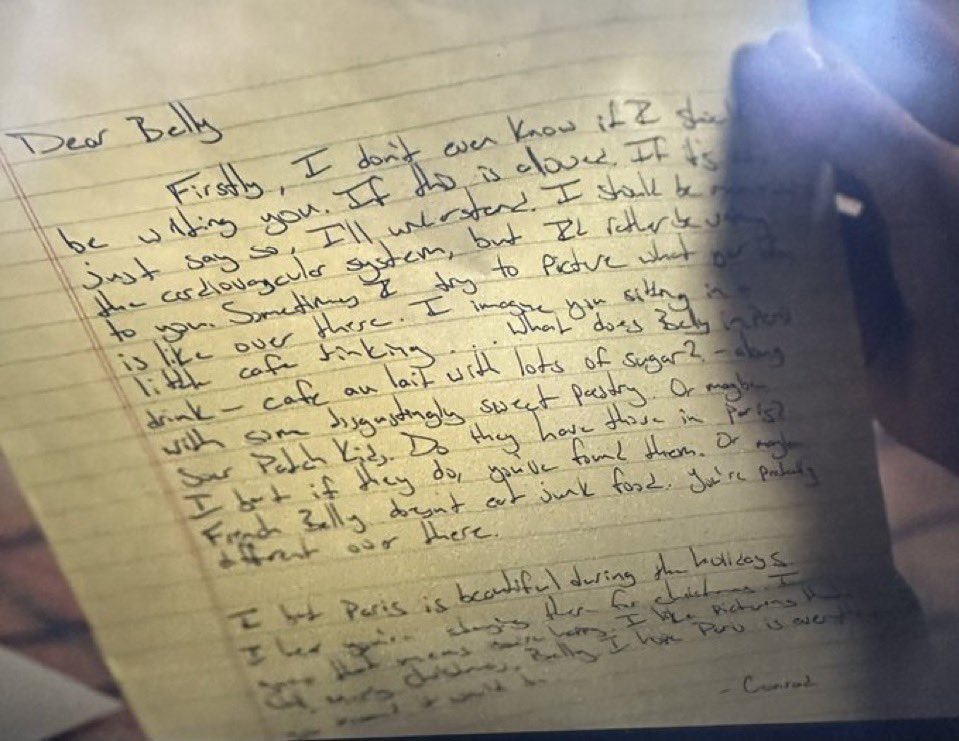 Dear Belly
Firstly, I don't even know if I
be writing you. If this is alowed. If it's
just say so, I'll understand. I should be
the cardiovascular system, but I'd rather be
to you. Sometimes I try to picture what
is like over there. I imagine you sitting in a
little cafe drinking.... What does Belly in Paris
drink - cafe au lait with lots of sugar? - along
with some disgustingly sweet pastry. Or maybe
Sour Patch Kids. Do they have those in Paris?
I bet if they do, you've found them. Or maybe
French Belly doesn't eat junk food. You're probably
different over there.
I bet Paris is beautiful during the holidays.
I hear you're staying there for christmas. I
that means you're happy. I like picturing
merry christmas, Belly I hope Paris is
it would be.
- Conrad